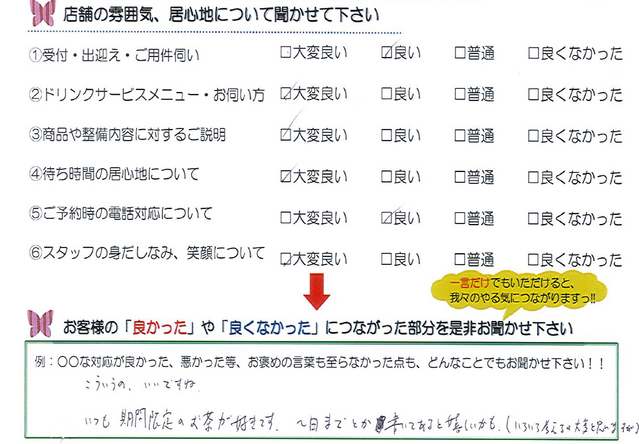 店舗の雰囲気、居心地について聞かせて下さい
①受付・出迎え・ご用件伺い ☐大変良い ☑良い ☐普通 ☐良くなかった
②ドリンクサービスメニュー・お伺い方 ☑大変良い ☐良い ☐普通 ☐良くなかった
③商品や整備内容に対するご説明 ☑大変良い ☐良い ☐普通 ☐良くなかった
④待ち時間の居心地について ☑大変良い ☐良い ☐普通 ☐良くなかった
⑤ご予約時の電話対応について ☐大変良い ☑良い ☐普通 ☐良くなかった
⑥スタッフの身だしなみ、笑顔について ☑大変良い ☐良い ☐普通 ☐良くなかった
一言だけでもいただけると、
我々のやる気につながりますっ!!
お客様の「良かった」や「良くなかった」につながった部分を是非お聞かせ下さい
例：〇〇な対応が良かった、悪かった等、お褒めの言葉も至らなかった点も、どんなことでもお聞かせ下さい！！
こういうの、いいですね.
いつも期間限定のお茶が好きです. 〜日までとか書いてあると嬉しいかも.(いろいろ考えるの大変と思いますが)